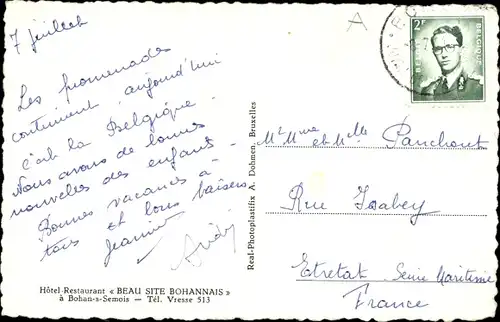 7 juillet
Les promenades
continuent aujourd'hui
c'est la Belgique.
Nous avons de bonnes
nouvelles des enfants.
Bonnes vacances à
tous et bons baisers
Jeannine
Hôtel-Restaurant « BEAU SITE BOHANNAIS »
à Bohan-s-Semois - Tél. Vresse 513
Real-Photoplastifix A. Dohmen, Bruxelles
A
2F
BELGIQUE
Mr Mme et Melle Panchout
Rue Isabey
Etretat Seine Maritime
France